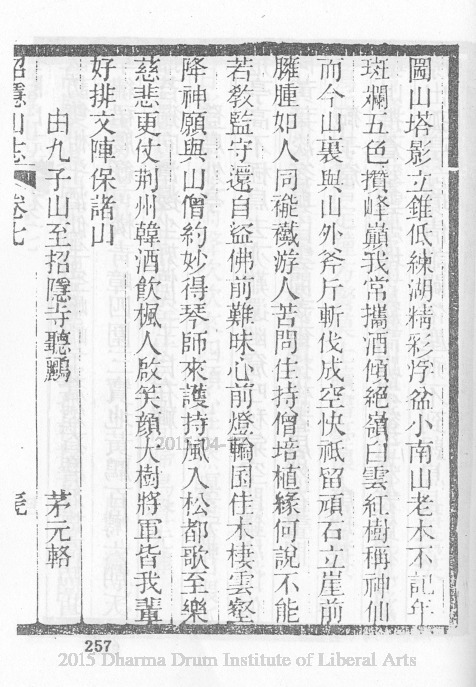 圌山塔影立錐低練湖精彩浮盆小南山老木不記年
斑斕五色攢峰巔我常攜酒傾絕嶺白雲紅樹稱神仙
而今山裏與山外斧斤斬伐成空快祗留頑石立崖前
臃腫如人同褦襶游人苦問住持僧培植緣何說不能
若教監守還自盜佛前難昧心前燈輪囷佳木棲雲壑
降神願與山僧約妙得琴師來護持風入松都歌至樂
慈悲更仗荆州韓酒飲楓人啟笑顏大樹將軍皆我輩
好排文陣保諸山
由九子山至招隱寺聽鸝 茅元輅
招隱山志 卷七
257
2015 Dharma Drum Institute of Liberal Arts